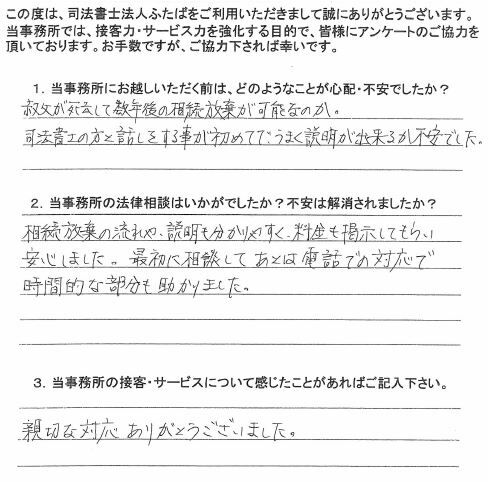 この度は、司法書士法人ふたばをご利用いただきまして誠にありがとうございます。
当事務所では、接客力・サービス力を強化する目的で、皆様にアンケートのご協力を
頂いております。お手数ですが、ご協力下されば幸いです。
１．当事務所にお越しいただく前は、どのようなことが心配・不安でしたか？
叔父が死去して数年後の相続放棄が可能なのか。
司法書士の方と話しをする事が初めてで、うまく説明が出来るか不安でした。
２．当事務所の法律相談はいかがでしたか？不安は解消されましたか？
相続放棄の流れや、説明も分かりやすく、料金も掲示してもらい
安心しました。最初に相談して あとは 電話での対応で
時間的な部分も助かりました。
３．当事務所の接客・サービスについて感じたことがあればご記入下さい。
親切な対応 ありがとうございました。